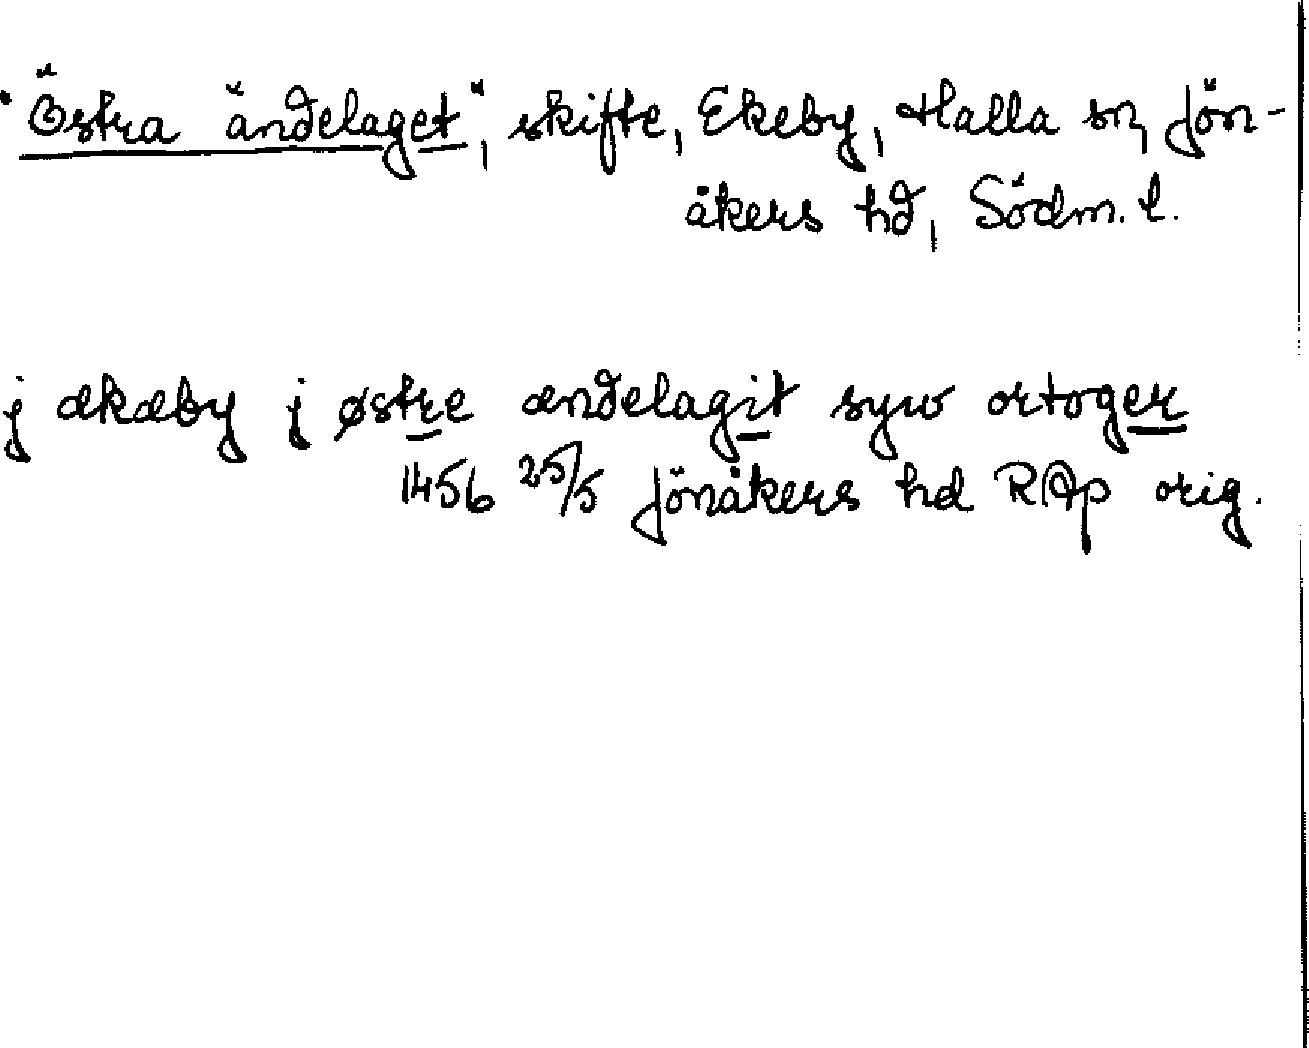 "Östra ändelaget", skifte, Ekeby, Halla sn, Jön-
åkers hd, Södm. l.
j ækæby j østre ændelagit syw ortoger
1456 25/5 Jönåkers hd RAp orig.